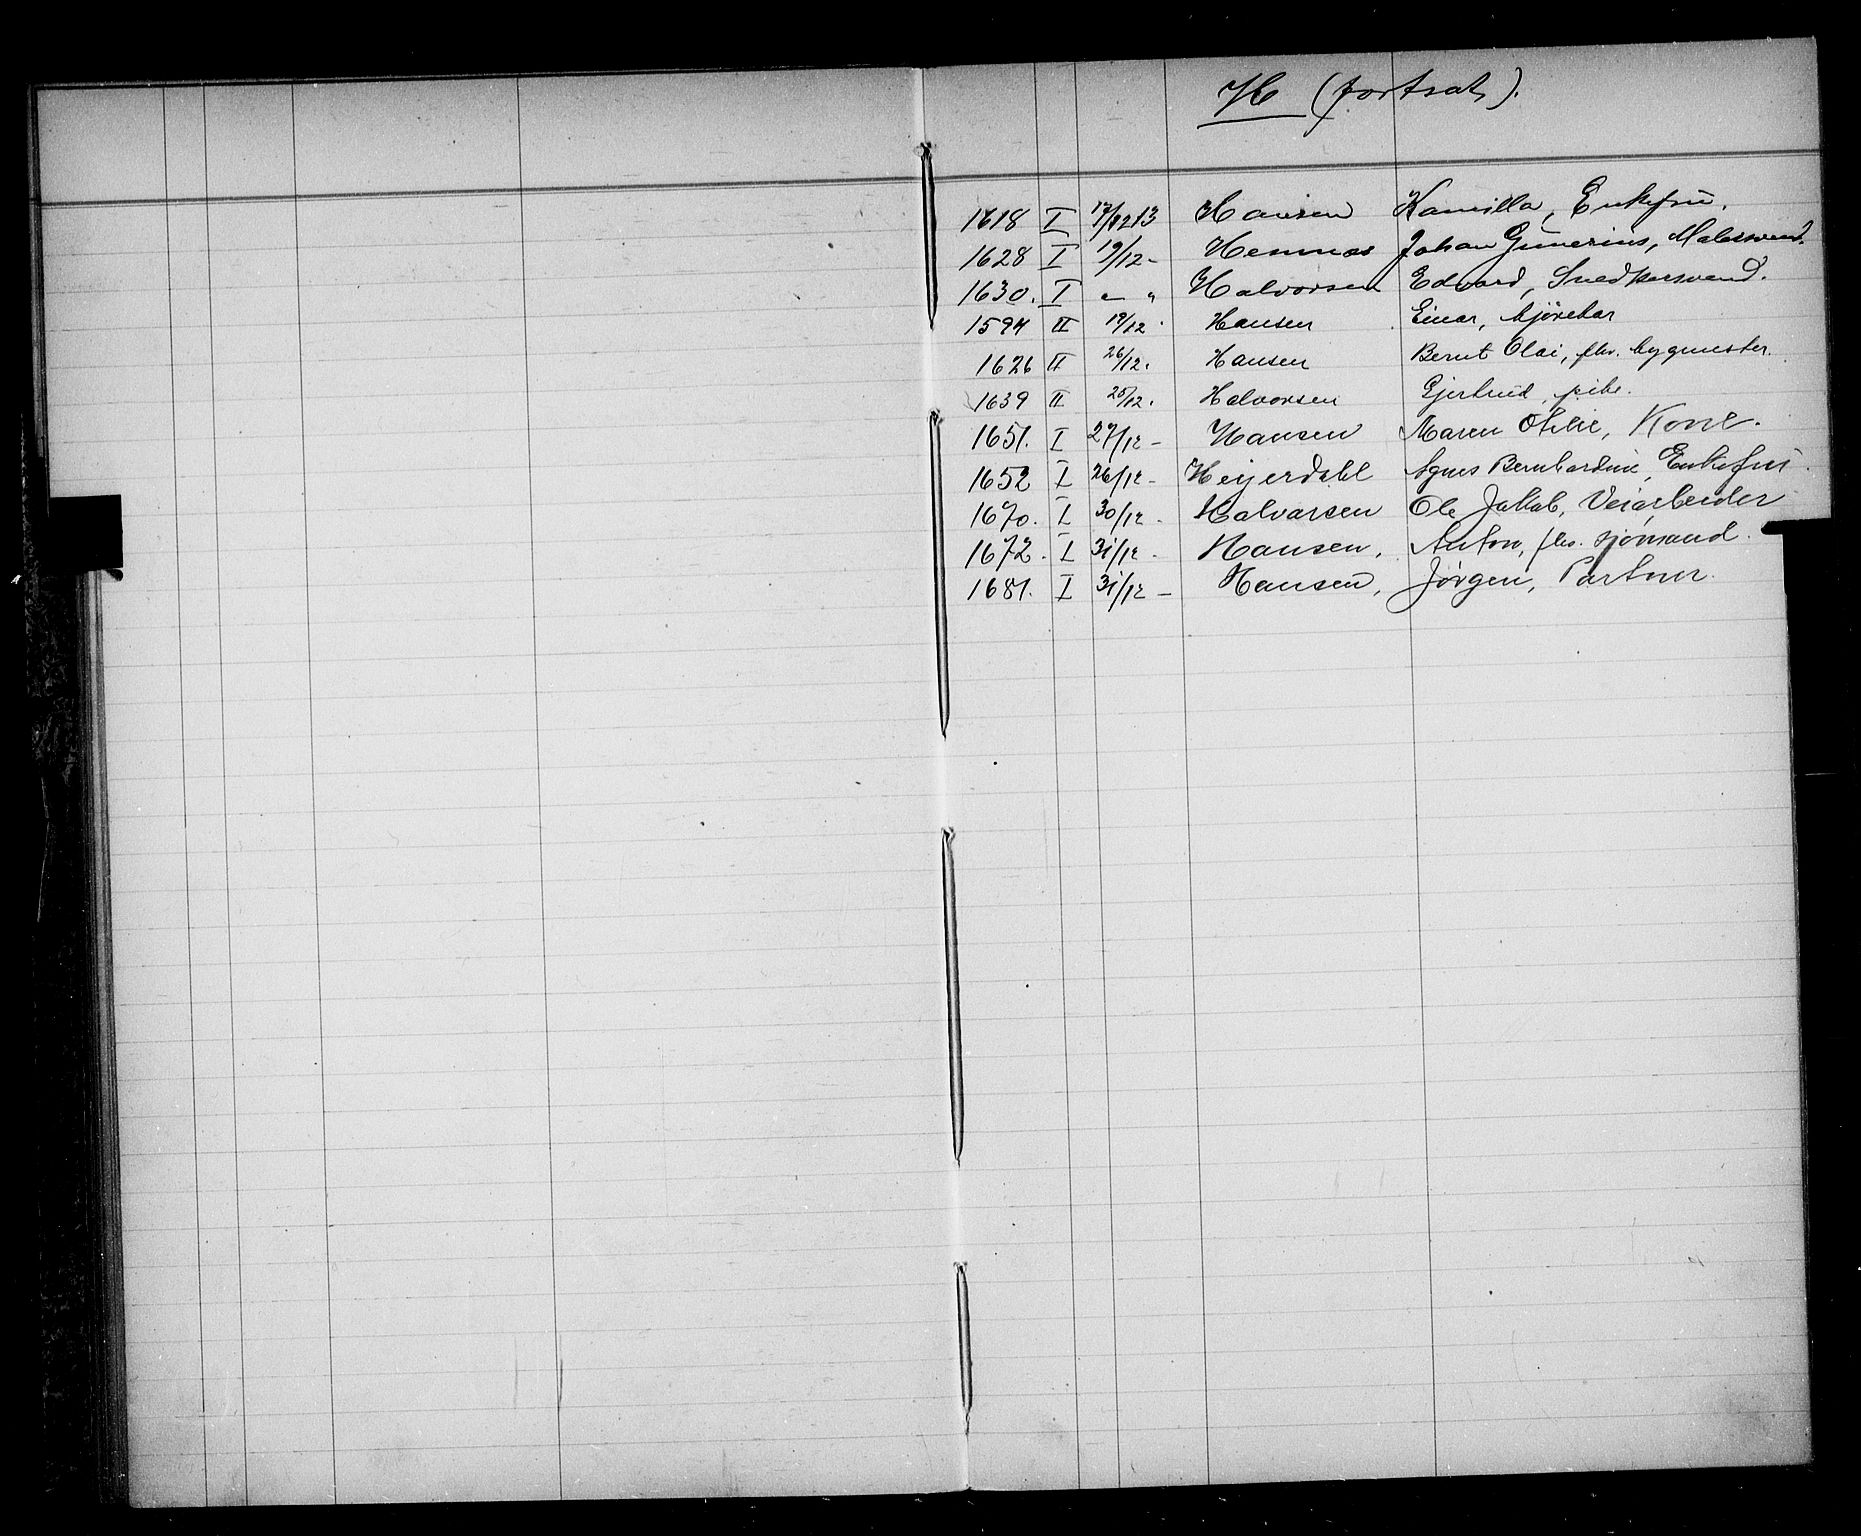 H (fortsat).
1618 I 17/12 13 Hansen Kamilla, Enkefru.
1628 I 19/12 - Hemnæs Johan Gunerius, Malersvend.
1630. I " " Halvorsen Edvard, Snedkersvend.
1594 II 19/12 . Hansen Einar, kjørekar
1626 II 26/12. Hansen Bernt Olai, fhv. bygmester.
1639 II 25/12. Halvorsen Gjertrud, pike.
1651. I 27/12 - Hansen Maren Otilie, Kone.
1652 I 26/12 - Heyerdahl Agnes Bernhardine, Enkefru.
1670. I 30/12 - Halvorsen Ole Jakob, Veiarbeider
1672. I 31/12 - Hansen, Anton, fhv. sjømand.
1681. I 31/12 - Hansen, Jørgen, Portner.